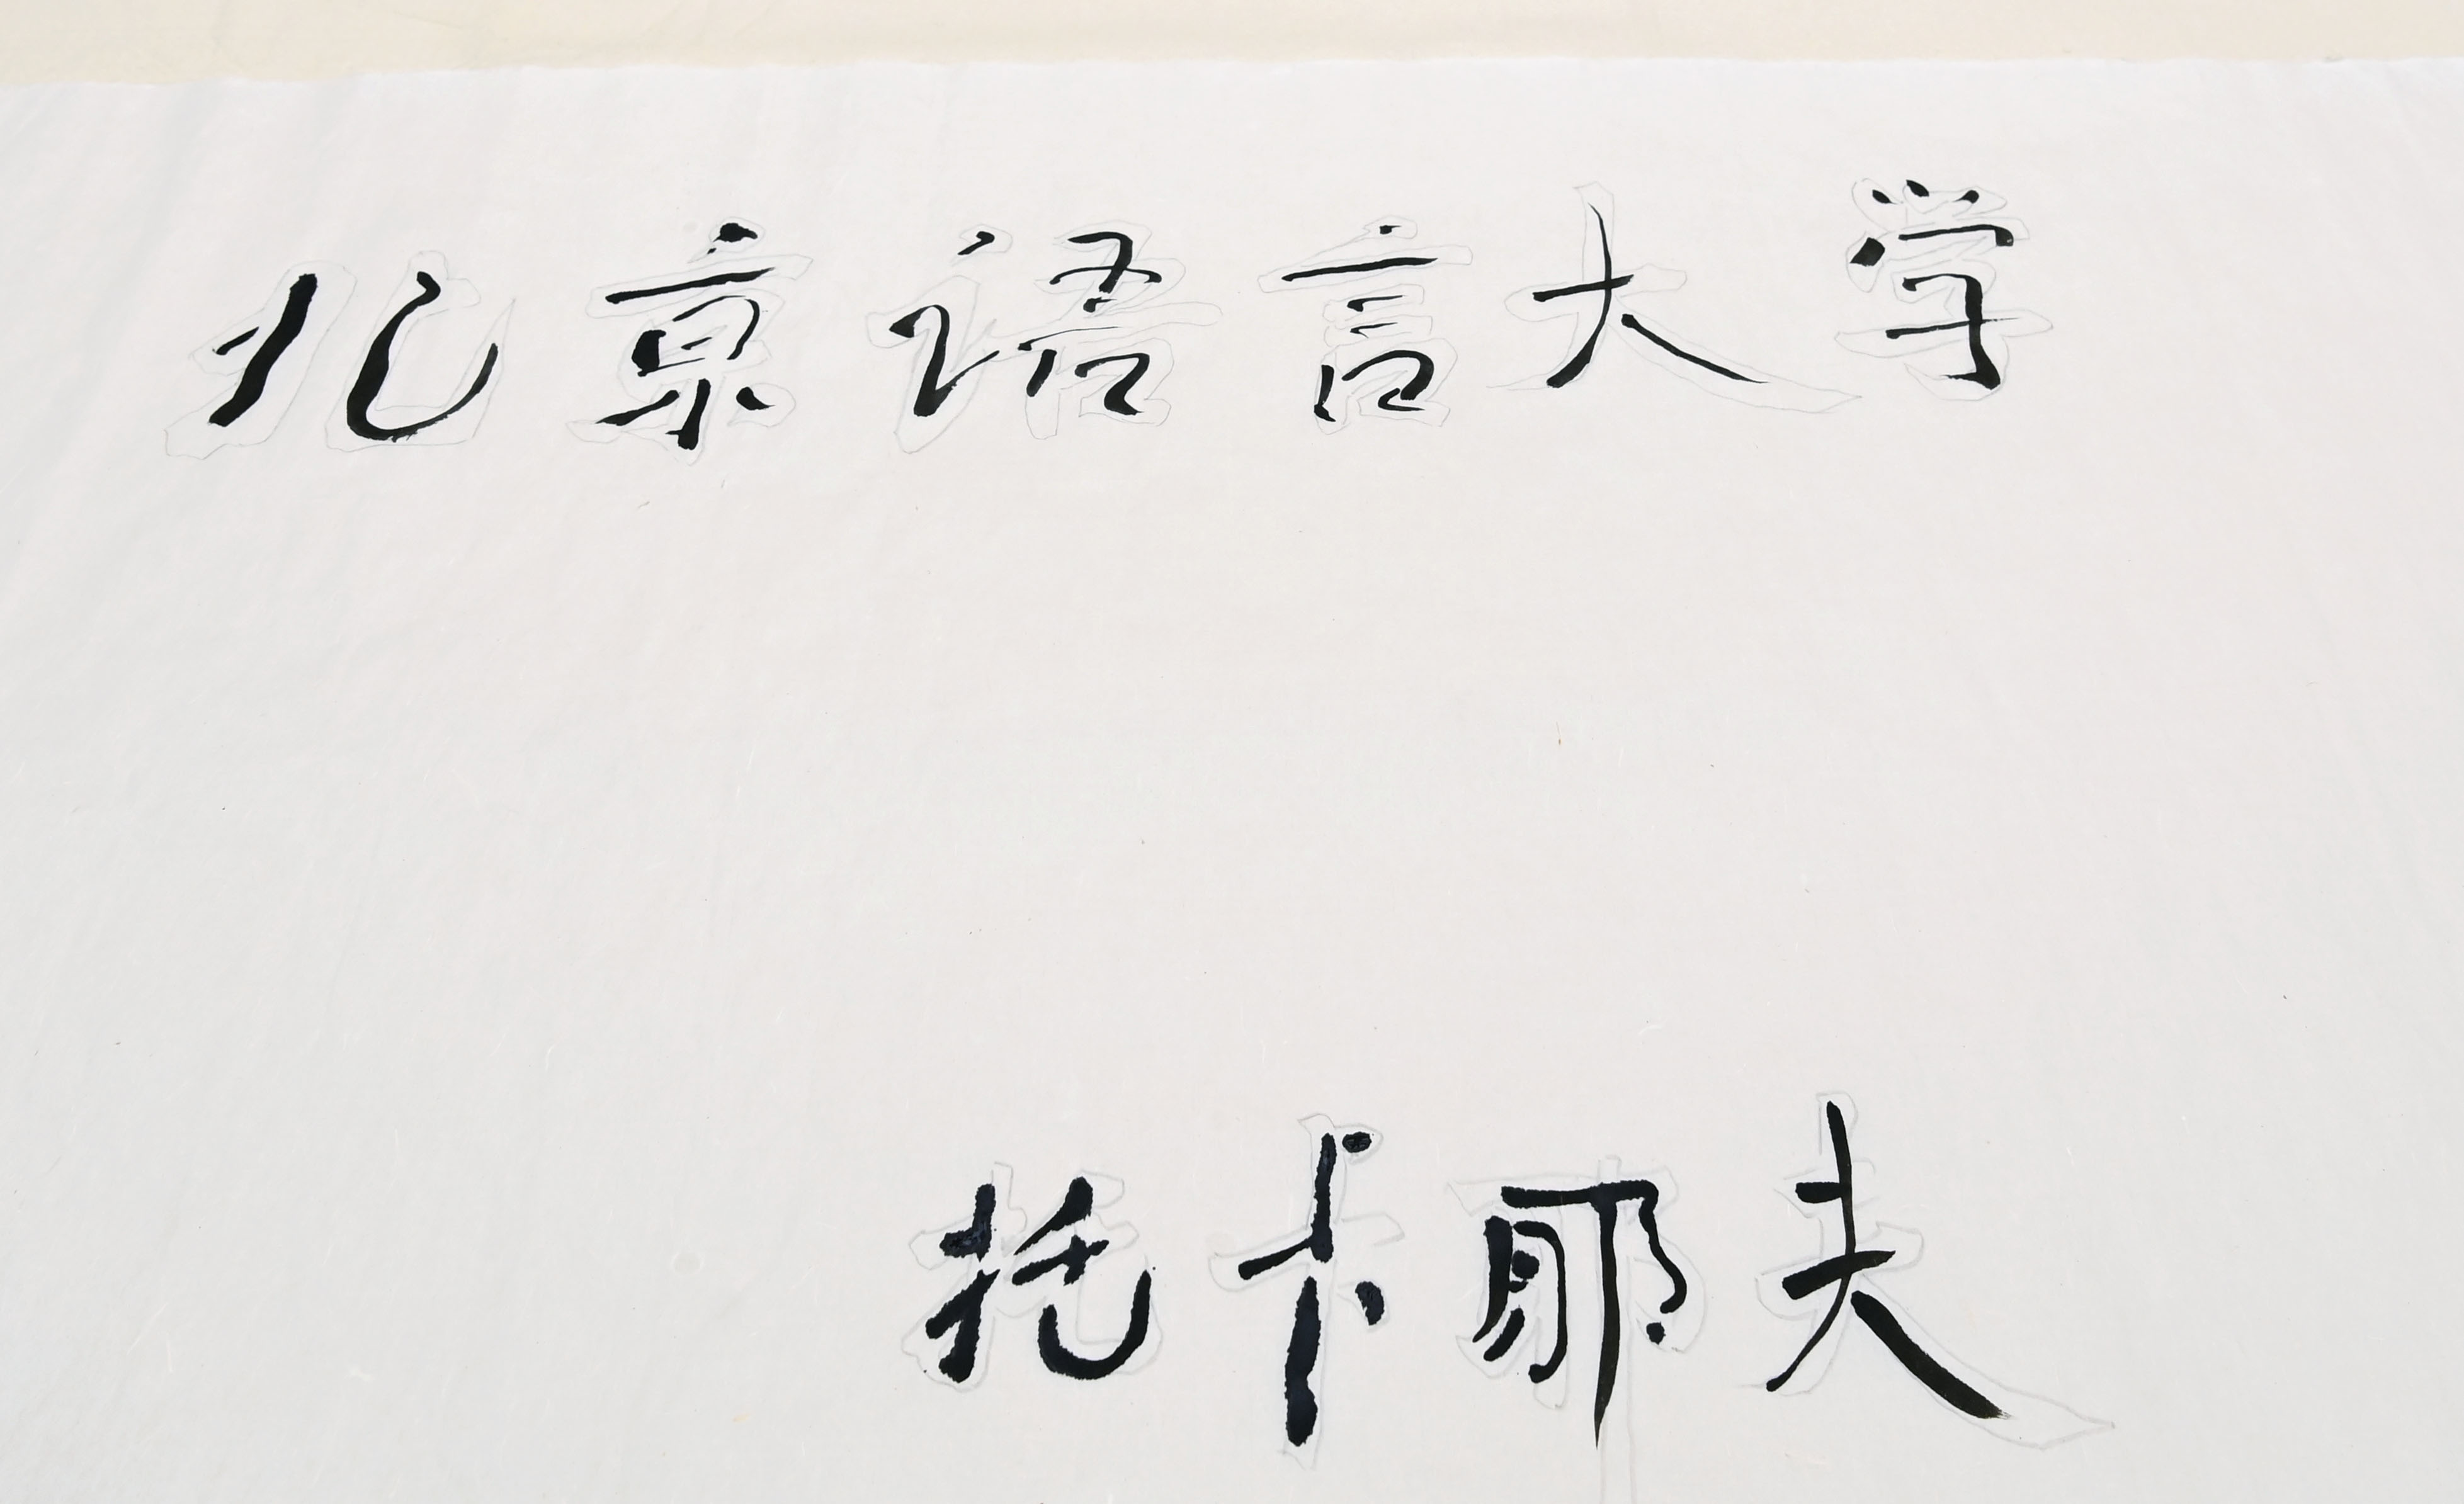 北京语言大学
托卡耶夫